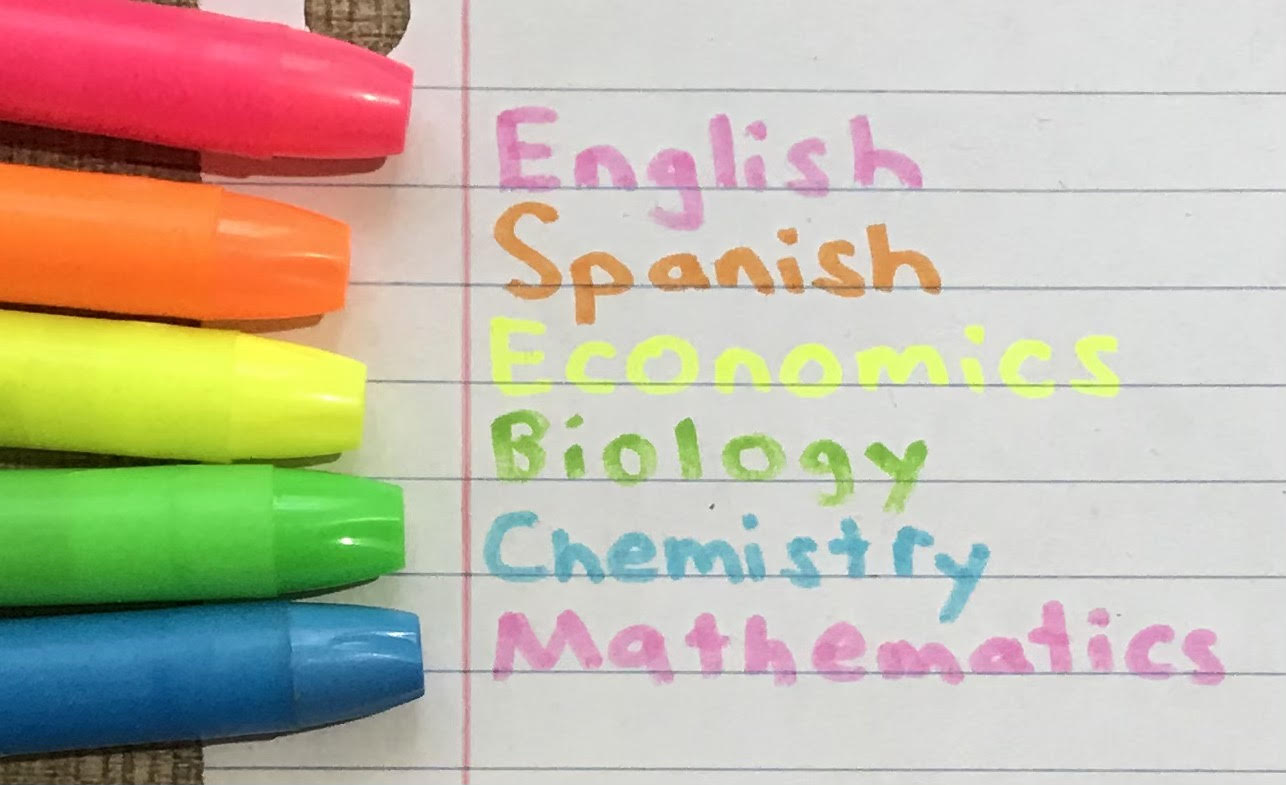 English
Spanish
Economics
Biology
Chemistry
Mathematics